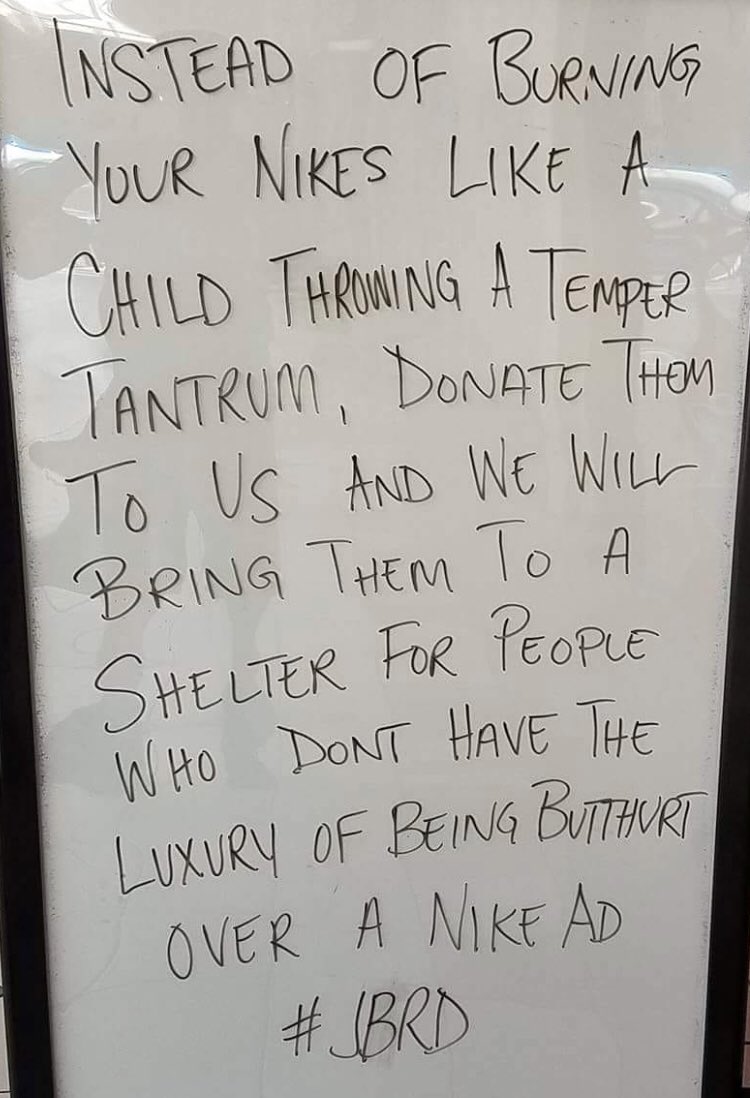 INSTEAD OF BURNING
YOUR NIKES LIKE A
CHILD THROWING A TEMPER
TANTRUM, DONATE THEM
TO US AND WE WILL
BRING THEM TO A
SHELTER FOR PEOPLE
WHO DONT HAVE THE
LUXURY OF BEING BUTTHURT
OVER A NIKE AD
#JBRD